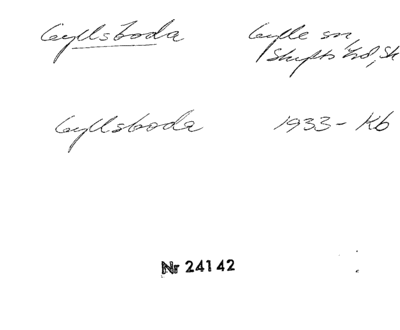 Gyllsboda Gylle sn,
Skytts hd, Sk
Gyllsboda 1933 - Kb
Nr 24142